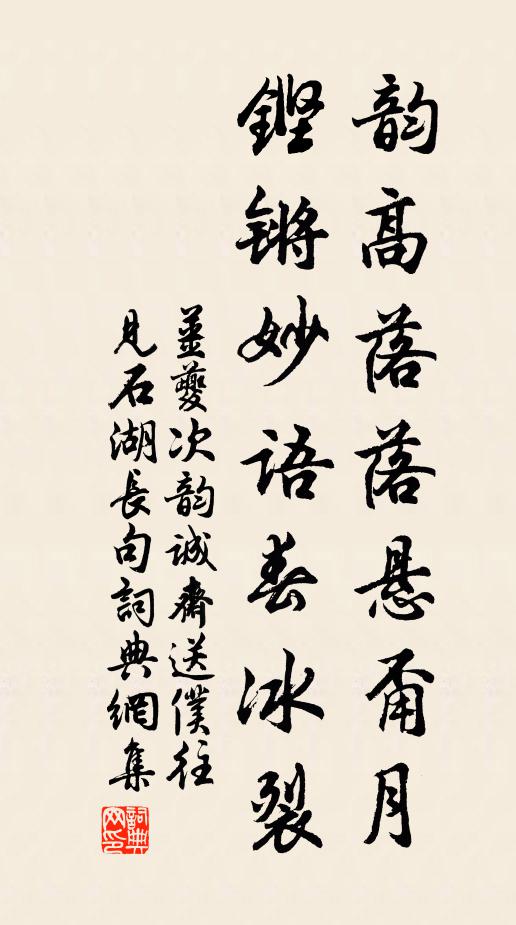 韵高落落悬月
鏗锵妙语春冰裂
薑夔次韵诚齋送僕往
見石湖長句詞典網集
詞典网印